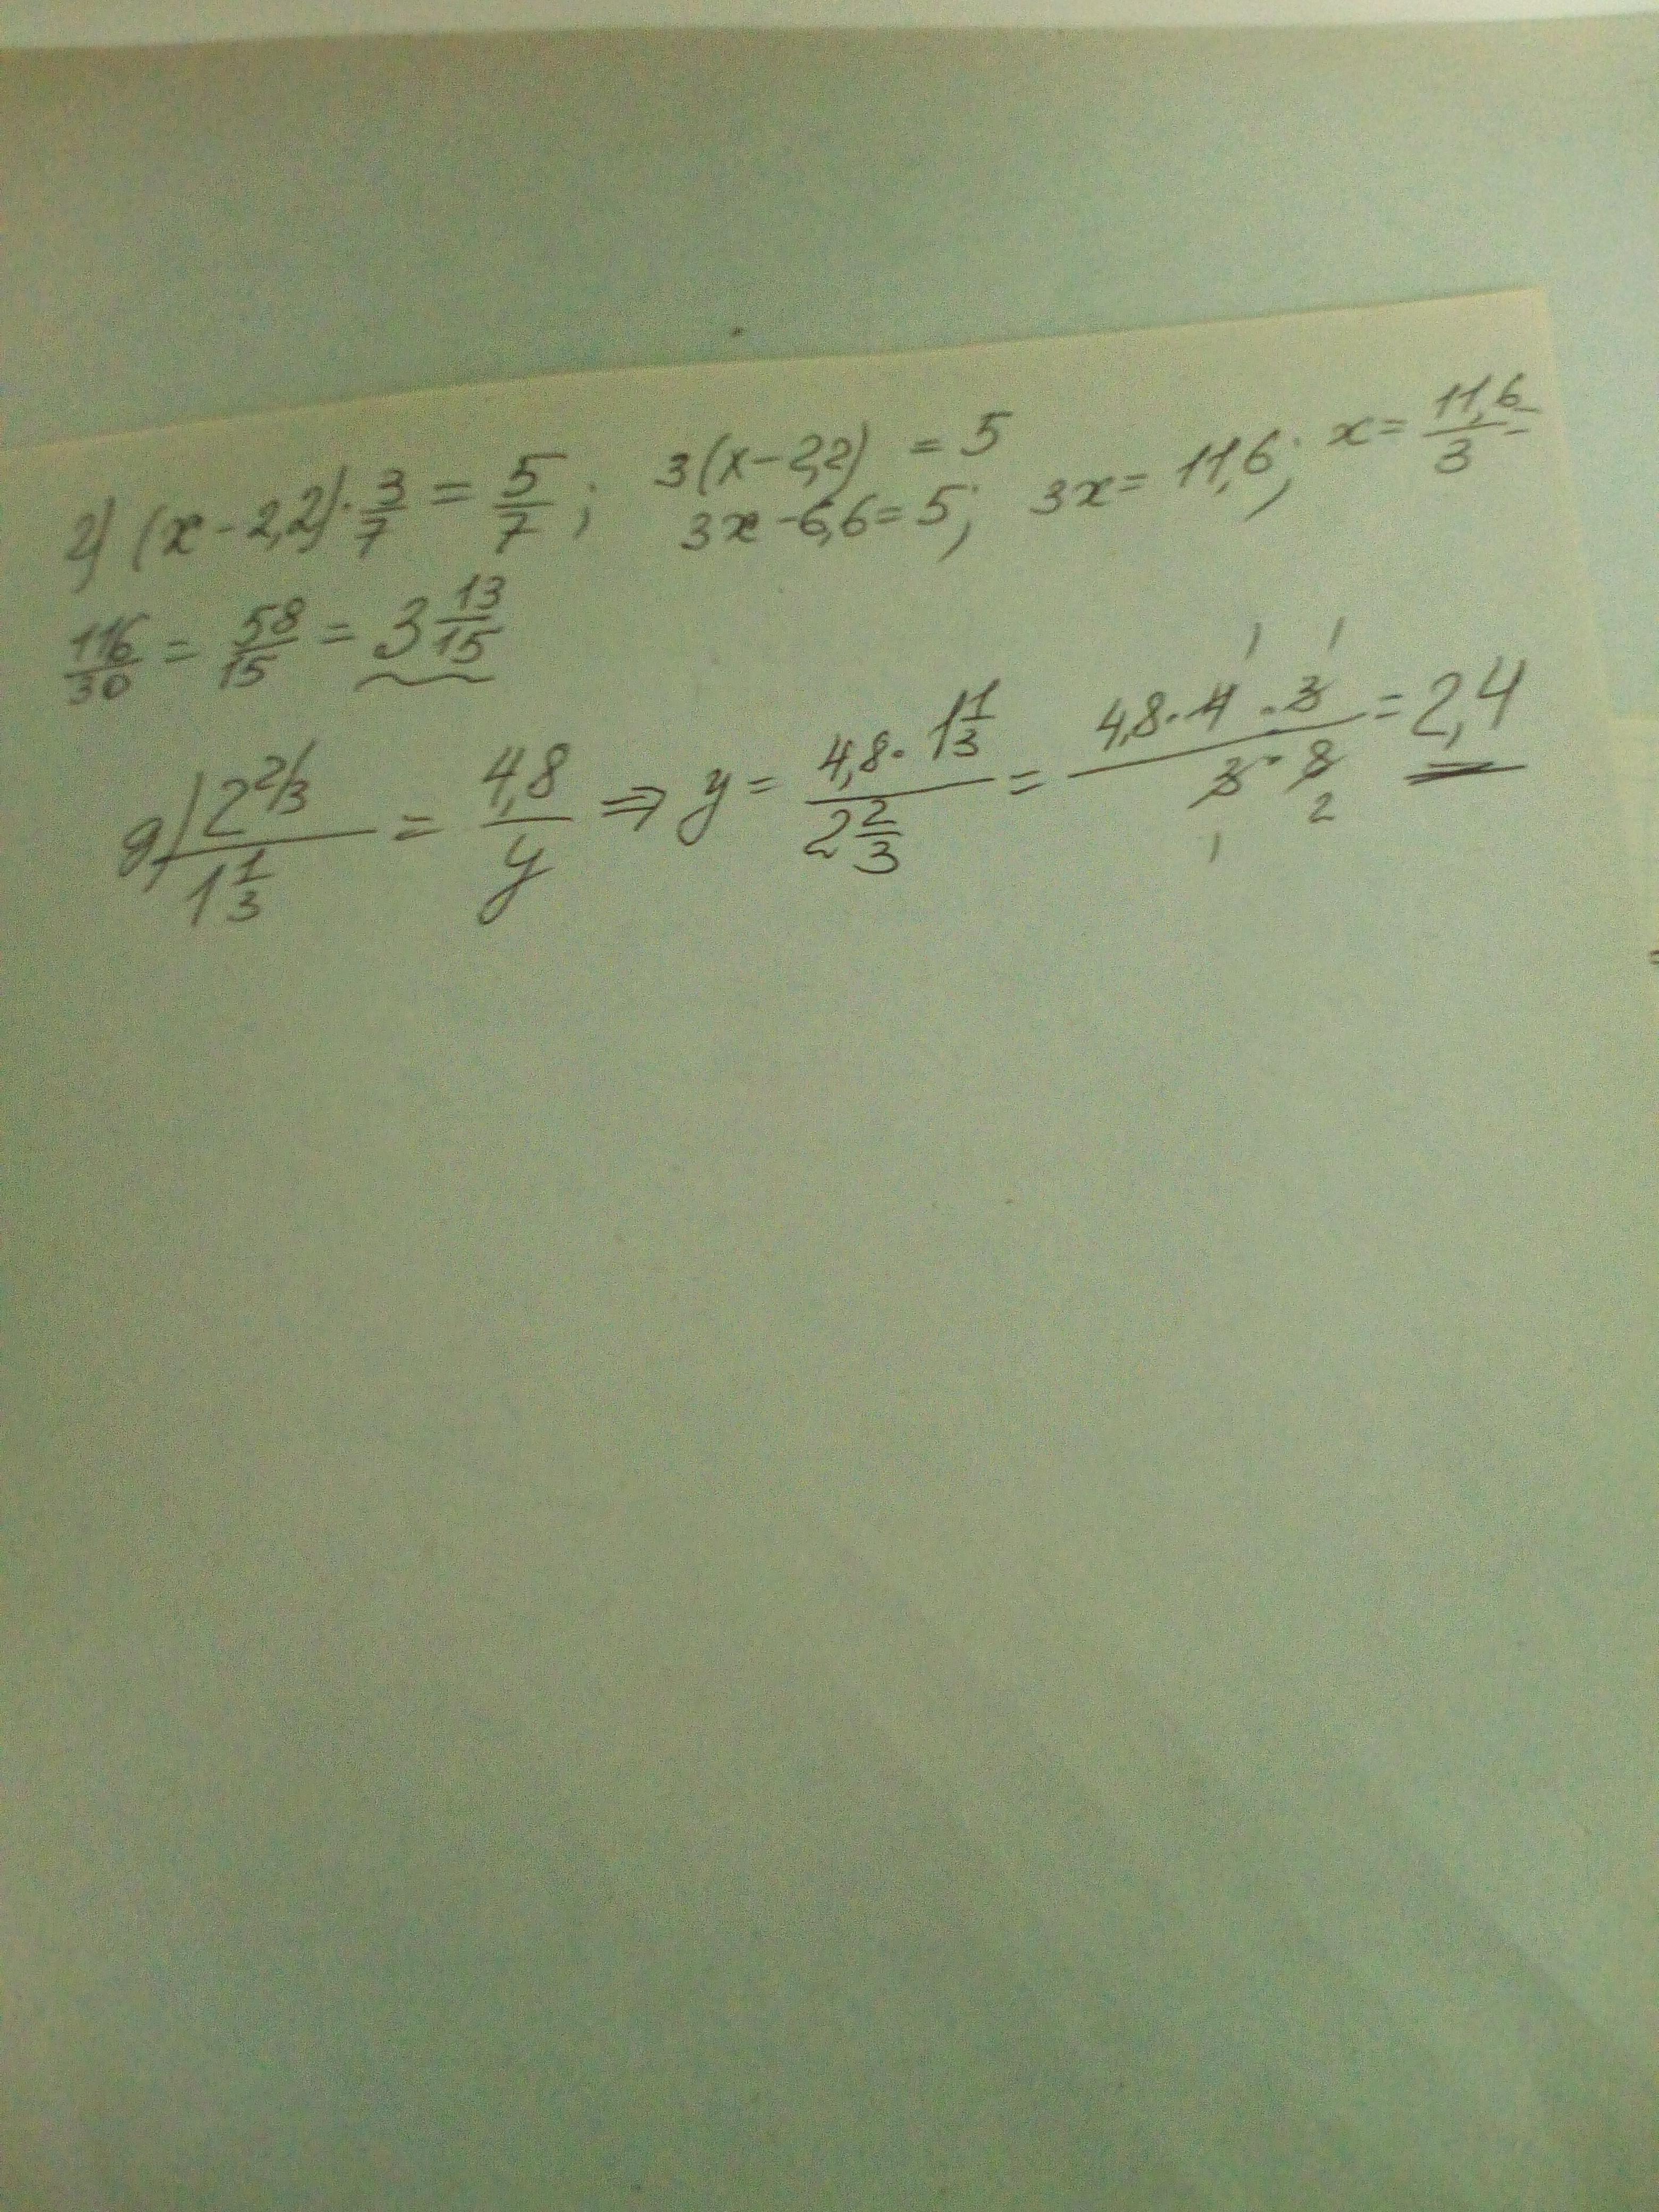 г) (x - 2,2) · 3/7 = 5/7 ; 3(x - 2,2) = 5
3x - 6,6 = 5; 3x = 11,6; x = 11,6/3 =
116/30 = 58/15 = 3 13/15
g) 2 2/3 / 1 1/3 = 4,8/y ⇒ y = 4,8 · 1 1/3 / 2 2/3 = 4,8 · 4 · 3 / 3 · 8 = 2,4
1 1
1 2